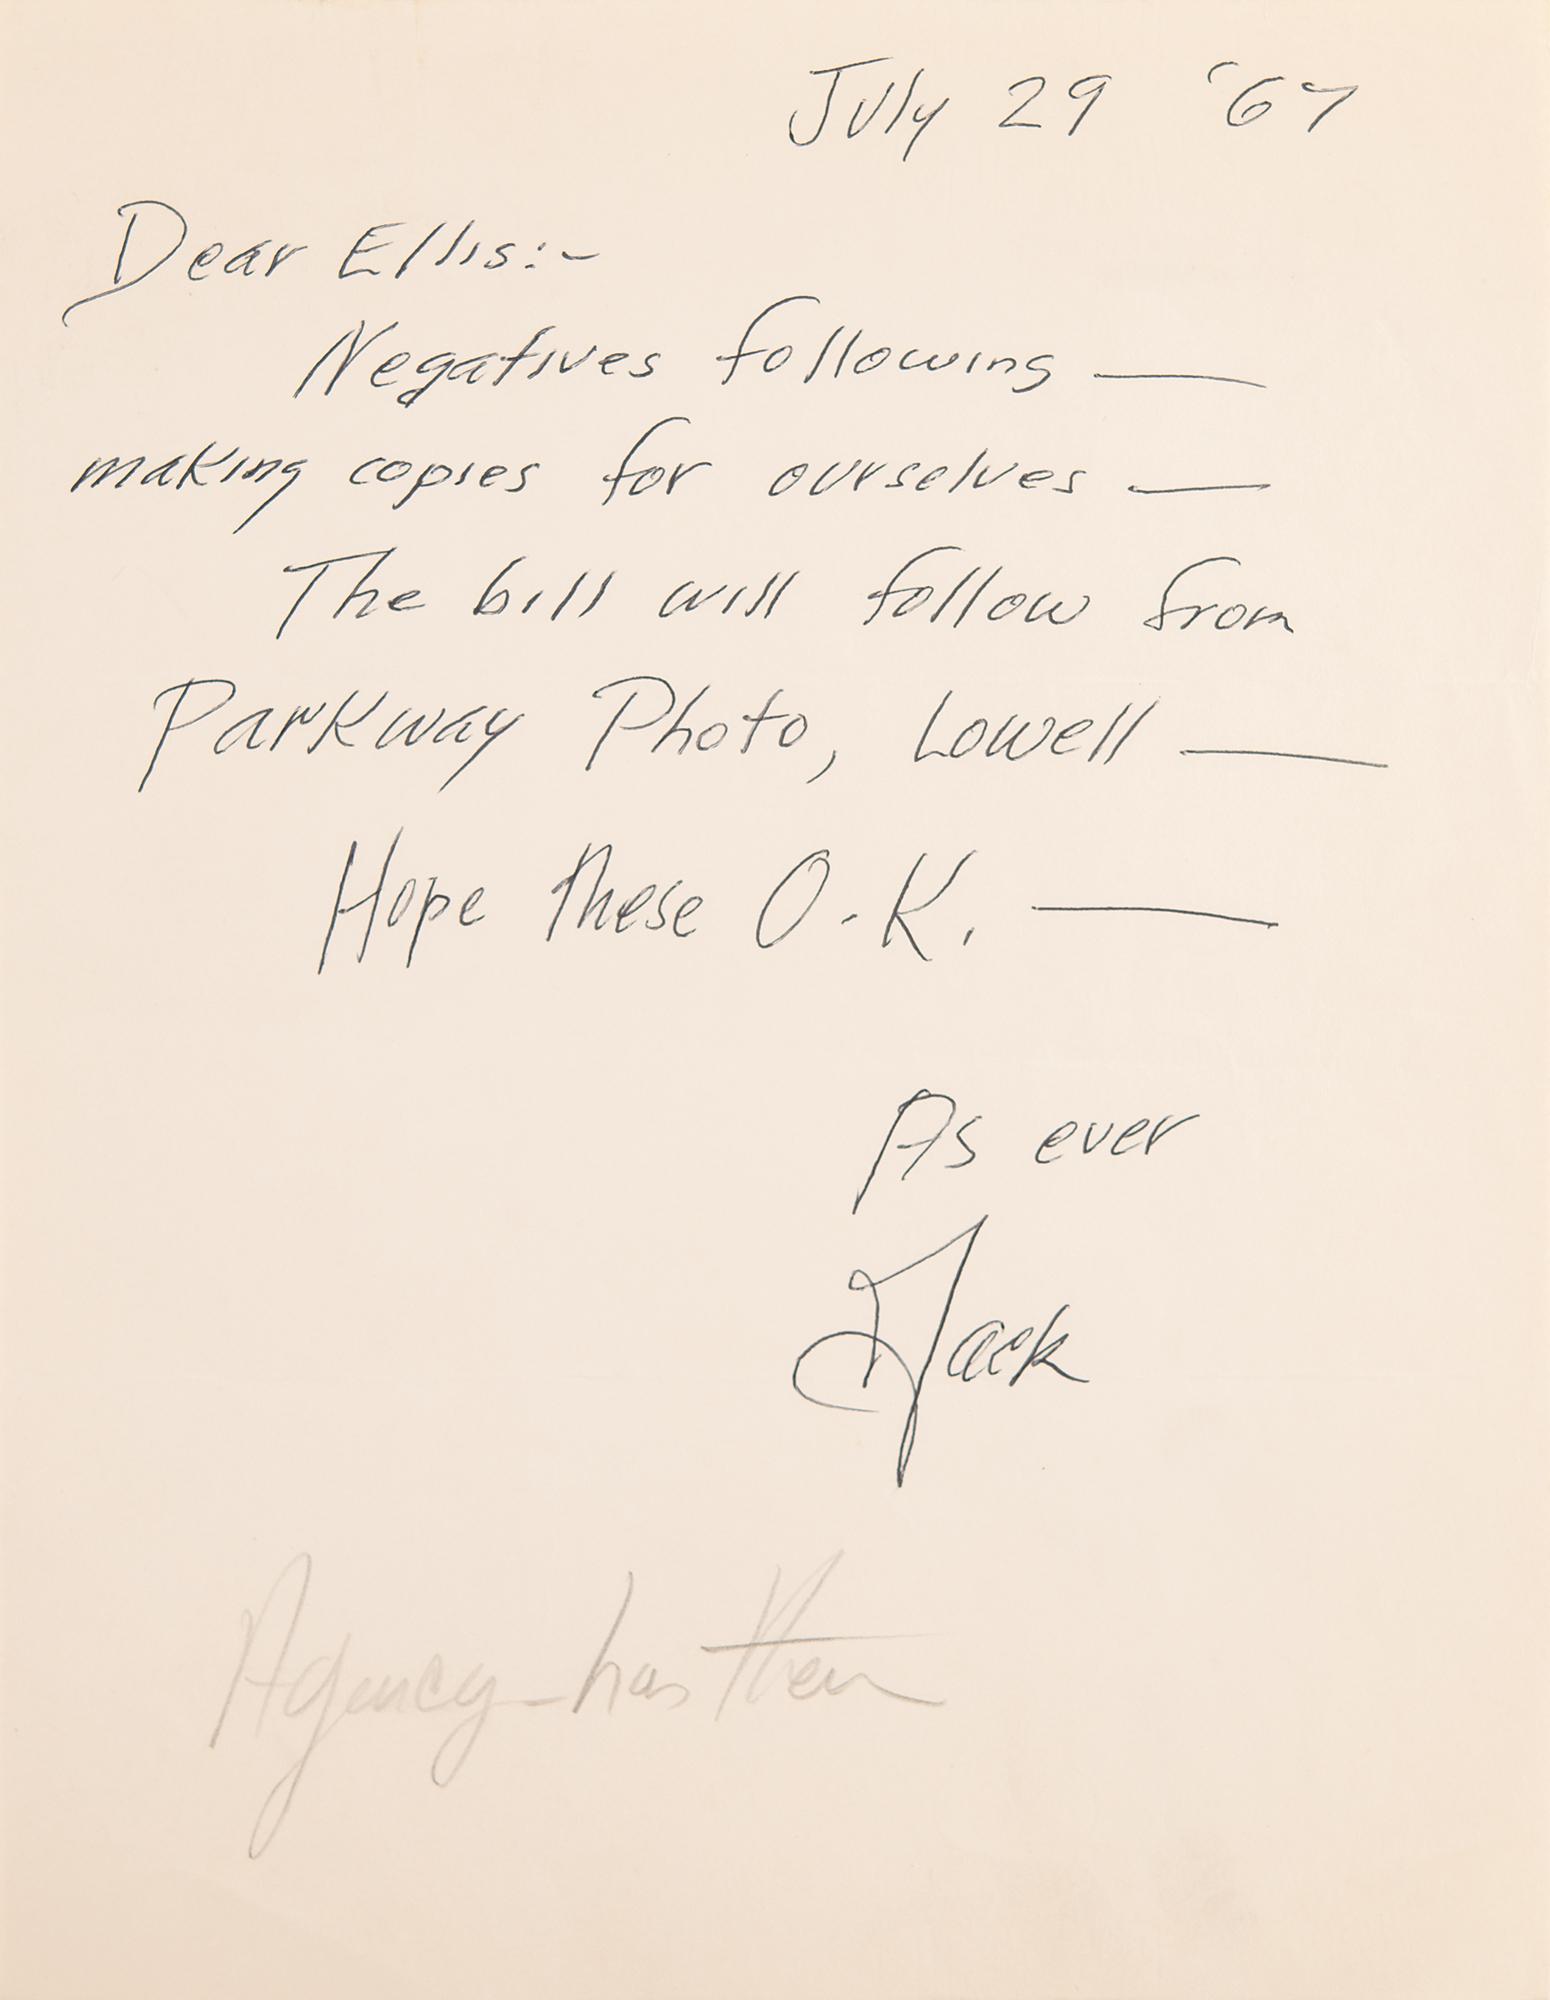 July 29 '67
Dear Ellis:-
Negatives following —
making copies for ourselves —
The bill will follow from
Parkway Photo, Lowell —
Hope these O.K. —
As ever
Jack
Agency - has them